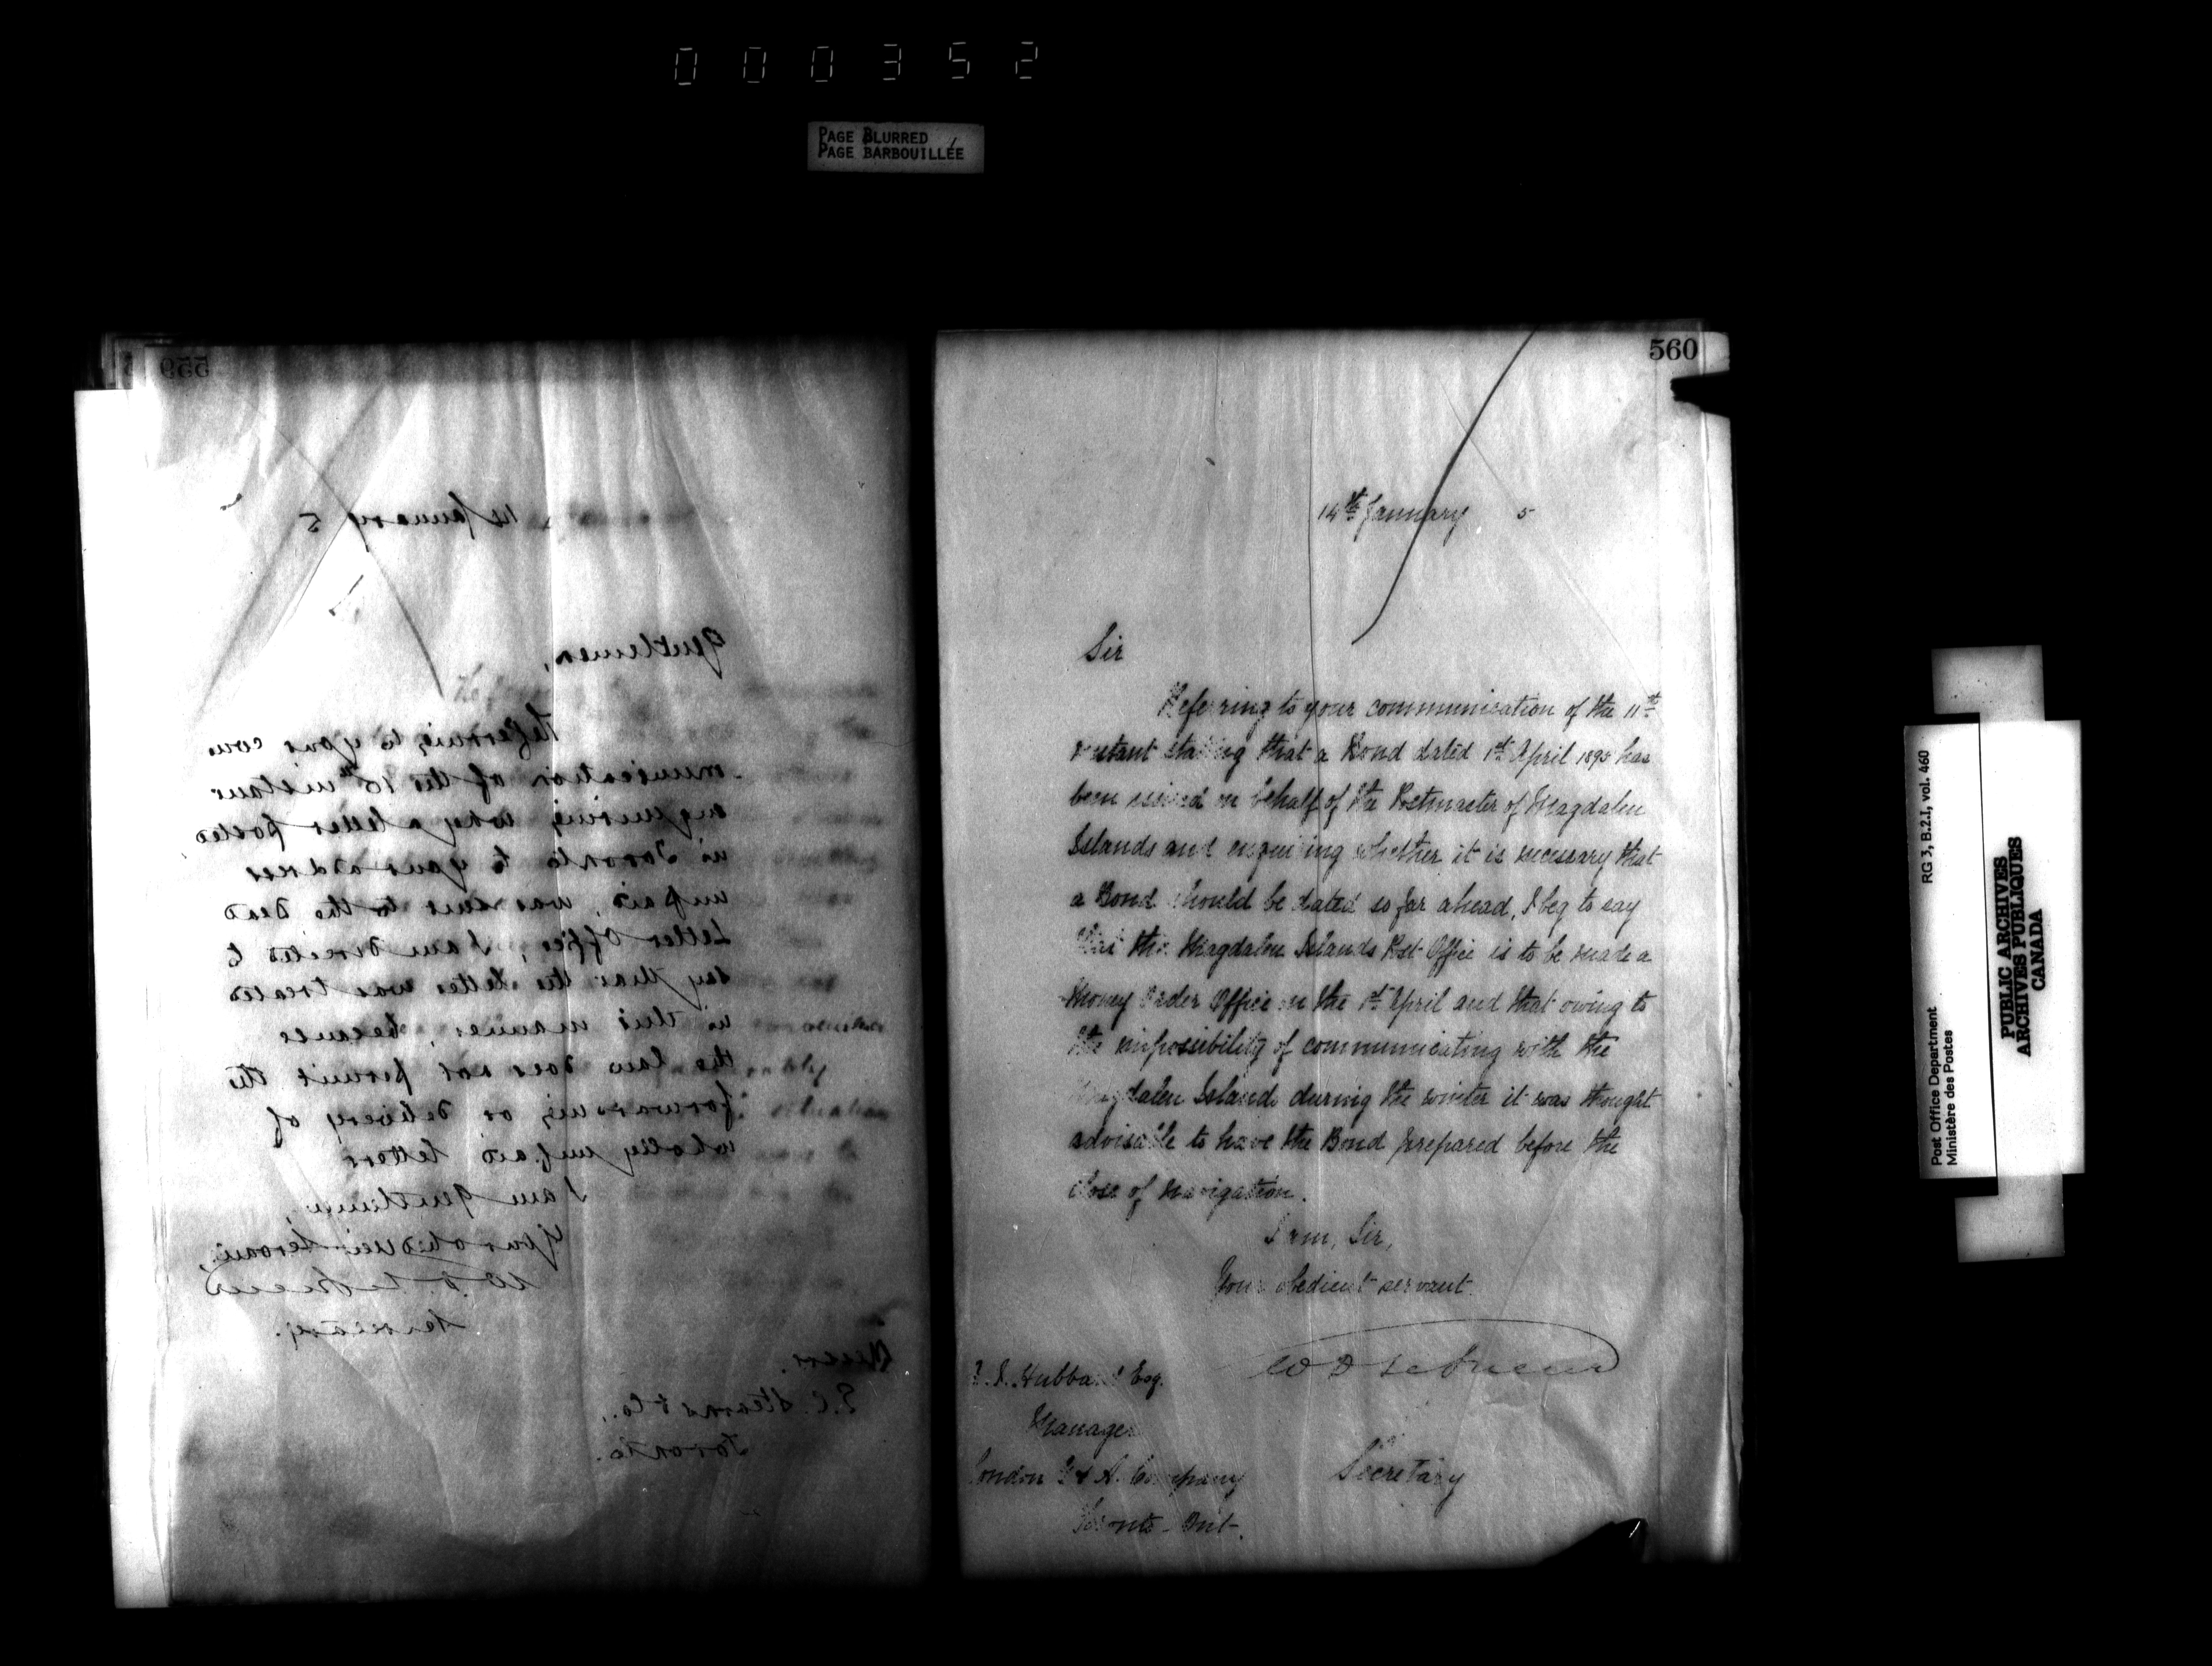 000352
PAGE BLURRED
PAGE BARBOUILLÉE
559
14 January 5
Gentlemen,
Referring to your com
munication of the 13th instant
enquiring why a letter posted
in Toronto to your address
unpaid, was sent to the Dead
Letter Office, I am directed to
say that the letter was treated
in this manner, because
the law does not permit the
forwarding or delivery of
wholly unpaid letters
I am gentlemen,
Your obedient servant,
Secretary.
Messrs.
Stearns & Co.,
Toronto.
560
14th January 5
Sir
Referring to your communication of the 11th
instant stating that a Bond dated 1st April 1895 has
been issued on behalf of the Postmaster of Magdalen
Islands and enquiring whether it is necessary that
a Bond should be dated so far ahead, I beg to say
that the Magdalen Islands Post Office is to be made a
Money Order Office on the 1st April and that owing to
the impossibility of communicating with the
Magdalen Islands during the winter it was thought
advisable to have the Bond prepared before the
close of navigation.
I am, Sir,
Your obedient servant
Hubbard Esq.
Manager
London G & A. Company
Toronto - Ont.
Secretary
RG 3, B.2.I, vol. 460
Post Office Department
Ministère des Postes
PUBLIC ARCHIVES
ARCHIVES PUBLIQUES
CANADA